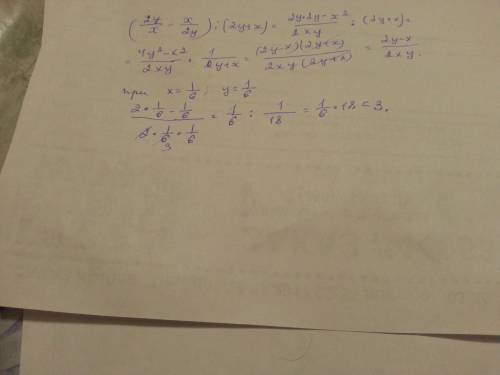 (2y/x - x/2y) : (2y+x) = (2y·2y - x²)/2xy : (2y+x) =
= (4y² - x²)/2xy · 1/(2y+x) = (2y-x)(2y+x)/2xy(2y+x) = (2y-x)/2xy.
при x = 1/6 ; y = 1/6
(2·1/6 - 1/6)/(2·1/6·1/6) = 1/6 : 1/18 = 1/6 · 18 = 3.
3